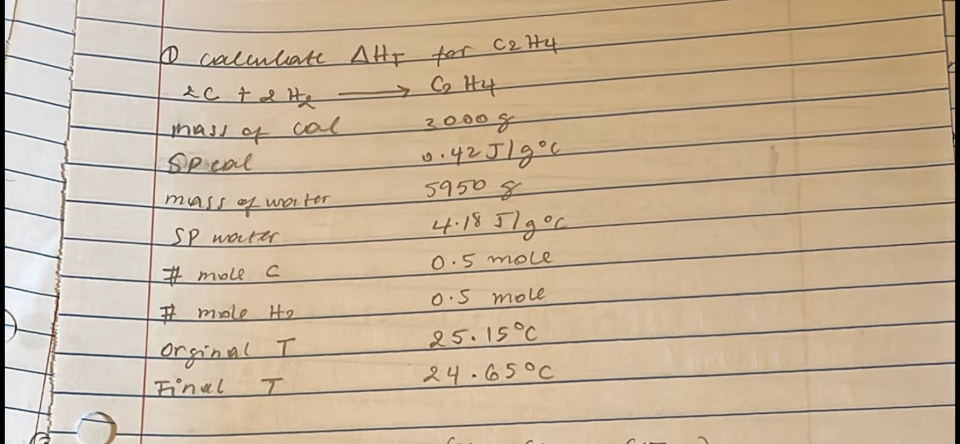 ① calculate ΔHf for C2H4
2C + 2H2 ⟶ C2H4
mass of cal 3000 g
SP cal 0.42 J/g°C
mass of water 5950 g
SP water 4.18 J/g°C
# mole C 0.5 mole
# mole H2 0.5 mole
Orginal T 25.15°C
Final T 24.65°C